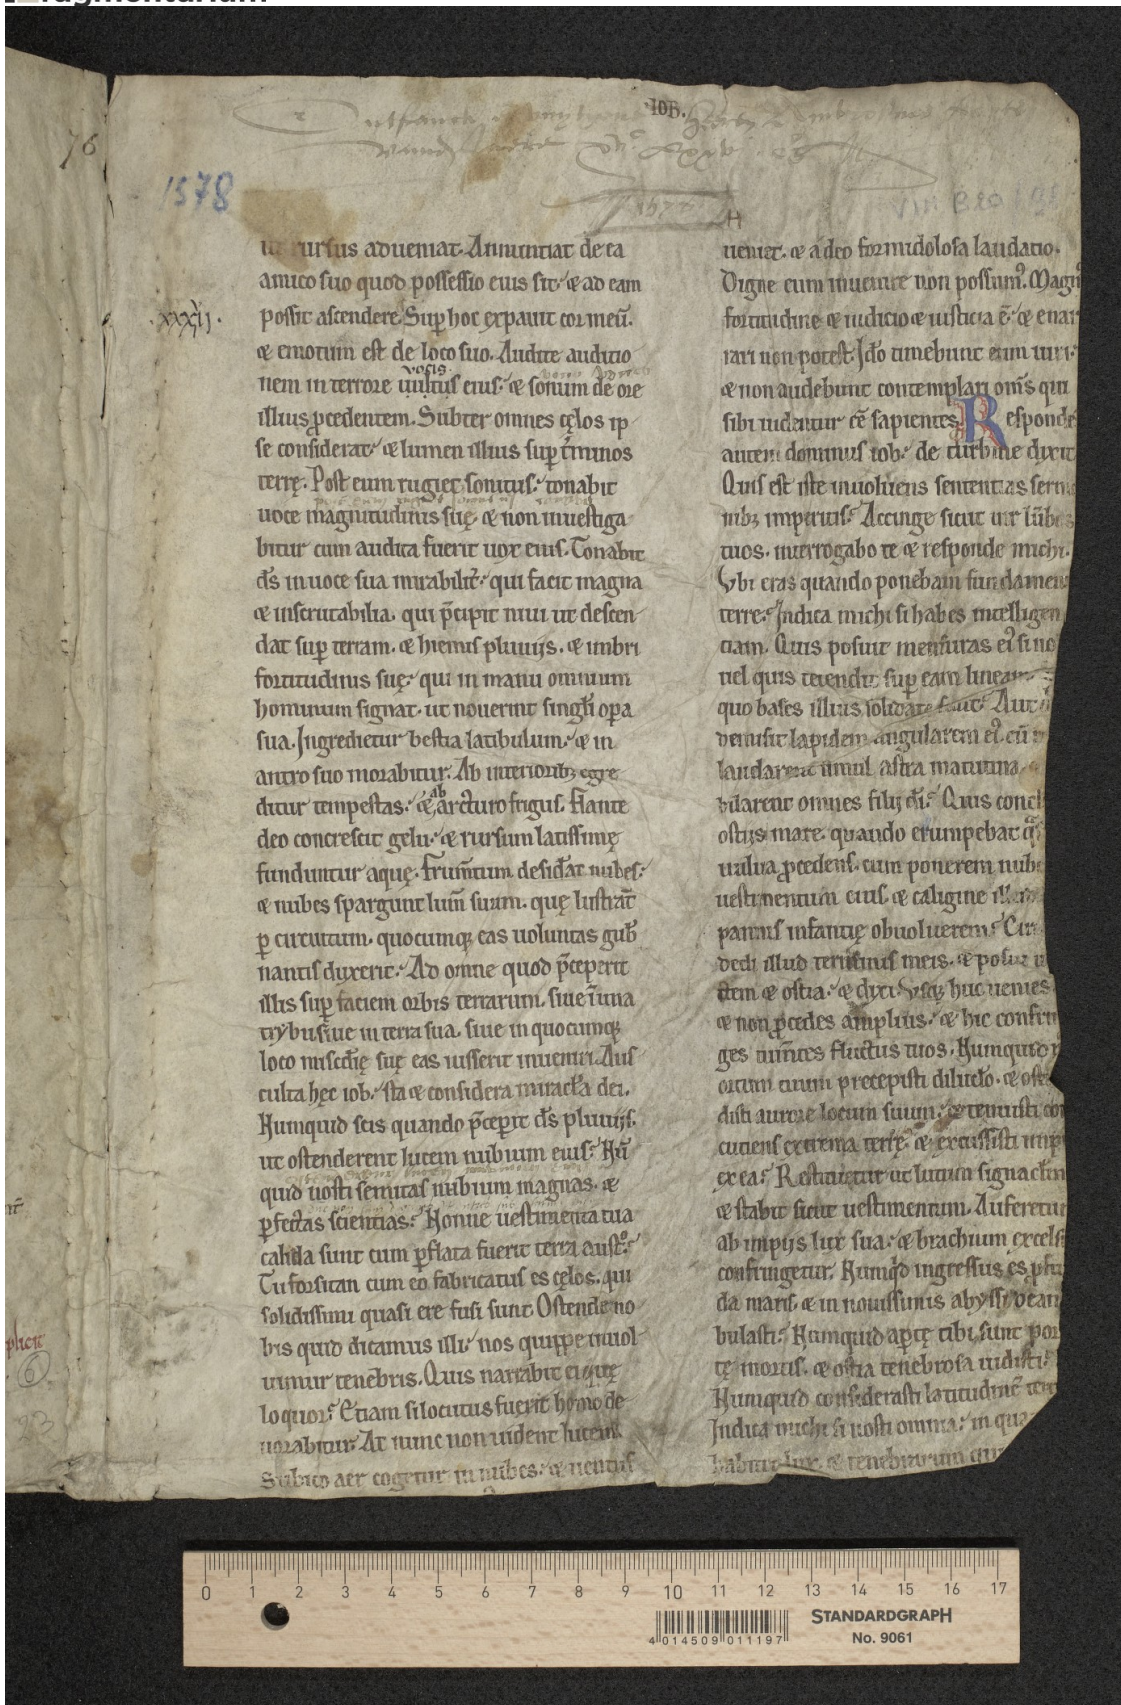 76
IOB.
1578
H
xxxvii.
ut rursus adueniat. Annuntiat de ea
amico suo quod possessio eius sit. & ad eam
possit ascendere. Sup̱ hoc expauit cor meū.
& emotum est de loco suo. Audite auditio
vocis.
nem in terrore uultus eius. & sonum de ore
illius ꝓcedentem. Subter omnes cęlos ip
se considerat. & lumen illius sup̱ t̄minos
terrę. Post eum rugiet sonitus. tonabit
uoce magnitudinis suę. & non inuestiga
bitur cum audita fuerit uox eius. Tonabit
ds̄ in uoce sua mirabilit̄. qui facit magna
& inscrutabilia. qui p̄cipit niui ut descen
dat sup̱ terram. & hiemis pluuijs. & imbri
fortitudinis suę. qui in manu omnium
hominum signat. ut nouerint singłi oꝑa
sua. Ingredietur bestia latibulum. & in
antro suo morabitur. Ab interiorib; egre
ab
ditur tempestas. & arcturo frigus. Flante
deo concrescit gelu. & rursum latissimę
funduntur aquę. Frum̄tum desid̄at nubes.
& nubes spargunt lum̄ suum. quę lustrāt
ꝑ circuitum. quocumq; eas uoluntas gub̄
nantis duxerit. Ad omne quod p̄ceꝑit
illis sup̱ faciem orbis terrarum. siue ī una
trybu siue in terra sua. siue in quocumq;
loco miscd̄ię suę eas iusserit inueniri. Aus
culta hęc iob. sta & considera miracła dei.
Numquid scis quando p̄ceꝑit ds̄ pluuijs.
ut ostenderent lucem nubium eius. Nū
quid nosti semitas nubium magnas. &
ꝑfectas scientias. Nonne uestimenta tua
calida sunt cum ꝑflata fuerit terra austº.
Tu forsitan cum eo fabricatus es cęlos. qui
solidissimi quasi ere fusi sunt. Ostende no
bis quid dicamus illi. nos quippe inuol
uimur tenebris. Quis narrabit ei quę
loquor. Etiam si locutus fuerit homo de
uorabitur. At nunc non uident lucem.
Subito aer cogetur in nubes. & uentus
ueniet. & a deo formidolosa laudatio.
Digne eum inuenire non possum᾿. Magn᾿
fortitudine & iudicio & iusticia ē. & enar
rari non potest. Ido timebunt eum uiri.
& non audebunt contemplari om̄s qui
sibi uidentur ēē sapientes. Responde
autem dominus iob. de turbine dixit
Quis est iste inuoluens sententias serm
nib; imperitis. Accinge sicut uir lūbos
tuos. interrogabo te & responde michi.
Vbi eras quando ponebam fundamen
terre. Indica michi si habes intelligen
tiam. Quis posuit mensuras ei᾿ si no
uel quis tetendit sup̱ eam lineam.
quo bases illius solidate sunt. Aut
demisit lapidem angularem ei᾿. cū
laudarent simul astra matutina
bilarent omnes filij di. Quis concl
ostijs mare. quando erumpebat q̄si
uulua ꝓcedens. cum ponerem nube
uestimentum eius. & caligine illud
pannis infantię obuoluerem. Cir
dedi illud terminis meis. & posui u
ctem & ostia. & dixi. Vsq; huc uenies
& non ꝓcedes amplius. & hic confrin
ges tum̄tes fluctus tuos. Numquid
ortum tuum precepisti diluc̄lo. & oste
disti aurore locum suum. & tenuisti con
cutiens extrema terrę. & excussisti imp
ex ea. Restituetur ut lutum signacłm
& stabit sicut uestimentum. Auferetur
ab impijs lux sua. & brachium excels
confringetur. Numq̇d ingressus es ꝓfu
da maris. & in nouissimis abyssi dean
bulasti. Numquid aꝑtę tibi sunt por
tę mortis. & ostia tenebrosa uidisti.
Numquid considerasti latitudinē terr
Indica michi si nosti omnia. in qua
habitat lux. & tenebrarum qui
plicit
6
23
0 1 2 3 4 5 6 7 8 9 10 11 12 13 14 15 16 17
STANDARDGRAPH
No. 9061
4 014509 011197